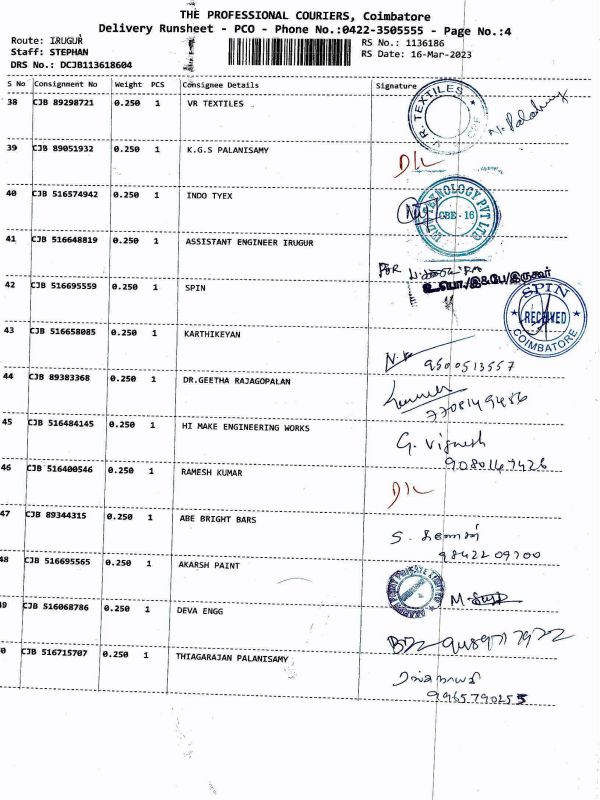 THE PROFESSIONAL COURIERS, Coimbatore
Delivery Runsheet - PCO - Phone No.:0422-3505555 - Page No.:4
Route: IRUGUR
RS No.: 1136186
Staff: STEPHAN
RS Date: 16-Mar-2023
DRS No.: DCJB113618604
S No Consignment No Weight PCS Consignee Details Signature
38 CJB 89298721 0.250 1 VR TEXTILES
V.R. TEXTILES
39 CJB 89051932 0.250 1 K.G.S PALANISAMY D/L
40 CJB 516574942 0.250 1 INDO TYEX
CBE - 16
41 CJB 516648819 0.250 1 ASSISTANT ENGINEER IRUGUR
42 CJB 516695559 0.250 1 SPIN
SPIN
RECEIVED
COIMBATORE
43 CJB 516658085 0.250 1 KARTHIKEYAN
9500513557
44 CJB 89383368 0.250 1 DR.GEETHA RAJAGOPALAN
7708149486
45 CJB 516484145 0.250 1 HI MAKE ENGINEERING WORKS G. Vignesh
9080147426
46 CJB 516400546 0.250 1 RAMESH KUMAR
D/L
47 CJB 89344315 0.250 1 ABE BRIGHT BARS
9842209700
48 CJB 516695565 0.250 1 AKARSH PAINT
9 CJB 516068786 0.250 1 DEVA ENGG
0 CJB 516715707 0.250 1 THIAGARAJAN PALANISAMY
9965790255